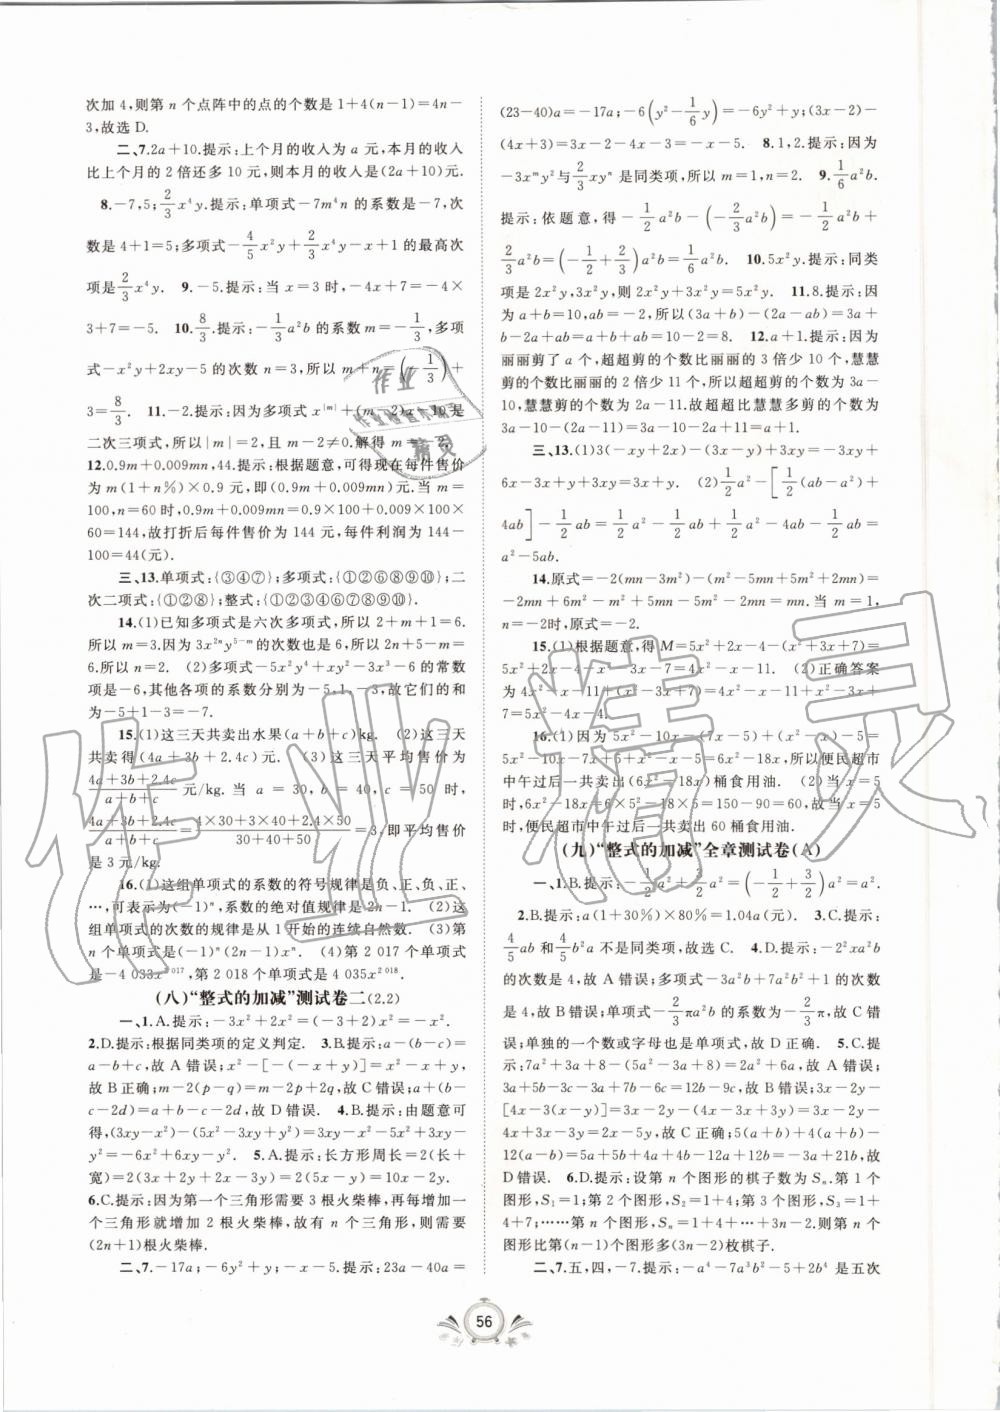 次加 4,则第 n 个点阵中的点的个数是 1+4(n-1)=4n-
3,故选 D.
二、7.2a+10.提示:上个月的收入为 a 元,本月的收入
比上个月的 2 倍还多 10 元,则本月的收入是(2a+10)元.
8.-7,5;2/3x⁴y.提示:单项式-7m⁴n 的系数是-7,次
数是 4+1=5;多项式-4/5x²y+2/3x⁴y-x+1 的最高次
项是2/3x⁴y. 9.-5.提示:当 x=3 时,-4x+7=-4×
3+7=-5. 10.8/3.提示:-1/3a²b 的系数 m=-1/3,多项
式-x²y+2xy-5 的次数 n=3,所以 m+n=(-1/3)+
3=8/3. 11.-2.提示:因为多项式 x|m|+(m-2)x-10 是
二次三项式,所以|m|=2,且 m-2≠0.解得 m=-2.
12.0.9m+0.009mn,44.提示:根据题意,可得现在每件售价
为 m(1+n%)×0.9 元,即(0.9m+0.009mn)元.当 m=
100,n=60 时,0.9m+0.009mn=0.9×100+0.009×100×
60=144,故打折后每件售价为 144 元,每件利润为 144-
100=44(元).
三、13.单项式:{③④⑦};多项式:{①②⑥⑧⑨⑩};二
次二项式:{①②⑧};整式:{①②③④⑥⑦⑧⑨⑩}.
14.(1)已知多项式是六次多项式,所以 2+m+1=6.
所以 m=3.因为 3x²ⁿy⁵⁻ᵐ的次数也是 6,所以 2n+5-m=
6.所以 n=2. (2)多项式-5x²y⁴+xy²-3x-6 的常数
项是-6,其他各项的系数分别为-5,1,-3,故它们的和
为-5+1-3=-7.
15.(1)这三天共卖出水果(a+b+c)kg. (2)这三天
共卖得(4a+3b+2.4c)元. (3)这三天平均售价是
(4a+3b+2.4c)/(a+b+c)元/kg. 当 a = 30, b = 40, c = 50 时,
(4a+3b+2.4c)/(a+b+c)=(4×30+3×40+2.4×50)/(30+40+50)=3,即平均售价
是 3 元/kg.
16.(1)这组单项式的系数的符号规律是负、正、负、正、
…,可表示为(-1)ⁿ,系数的绝对值规律是 2n-1. (2)这
组单项式的次数的规律是从 1 开始的连续自然数. (3)第
n 个单项式是(-1)ⁿ(2n-1)xⁿ. (4)第 2 017 个单项式
是-4 033x²⁰¹⁷,第 2 018 个单项式是 4 035x²⁰¹⁸.
(八)“整式的加减”测试卷二(2.2)
一、1.A.提示:-3x²+2x²=(-3+2)x²=-x².
2.D.提示:根据同类项的定义判定. 3.B.提示:a-(b-c)=
a-b+c,故 A 错误;x²-[-(-x+y)]=x²-x+y,
故 B 正确;m-2(p-q)=m-2p+2q,故 C 错误;a+(b-
c-2d)=a+b-c-2d,故 D 错误. 4.B.提示:由题意可
得,(3xy-x²)-(5x²-3xy+y²)=3xy-x²-5x²+3xy-
y²=-6x²+6xy-y². 5.A.提示:长方形周长=2(长+
宽)=2(3x+2y+2x-y)=2(5x+y)=10x+2y.
6.C.提示:因为第一个三角形需要 3 根火柴棒,再每增加一
个三角形就增加 2 根火柴棒,故有 n 个三角形,则需要
(2n+1)根火柴棒.
二、7.-17a;-6y²+y;-x-5.提示:23a-40a=
(23-40)a=-17a;-6(y²-1/6y)=-6y²+y;(3x-2)-
(4x+3)=3x-2-4x-3=-x-5. 8.1,2.提示:因为
-3xᵐy²与2/3xyⁿ是同类项,所以 m=1,n=2. 9.1/6a²b.
提示:依题意,得-1/2a²b-(-2/3a²b)=-1/2a²b+
2/3a²b=(-1/2+2/3)a²b=1/6a²b. 10.5x²y.提示:同类
项是 2x²y,3x²y,则 2x²y+3x²y=5x²y. 11.8.提示:因
为 a+b=10,ab=-2,所以(3a+b)-(2a-ab)=3a+
b-2a+ab=a+b+ab=10-2=8. 12.a+1.提示:因为
丽丽剪了 a 个,超超剪的个数比丽丽的 3 倍少 10 个,慧慧
剪的个数比丽丽的 2 倍少 11 个,所以超超剪的个数是 3a-
10,慧慧剪的个数是 2a-11.故超超比慧慧多剪的个数为
3a-10-(2a-11)=a+1.
三、13.(1)3(-xy+2x)-(3x-y)+3xy=-3xy+
6x-3x+y+3xy=3x+y. (2)1/2a²-[1/2(ab-a²)+
4ab]-1/2ab=1/2a²-1/2ab+1/2a²-4ab-1/2ab=
a²-5ab.
14.原式=-2(mn-3m²)-(m²-5mn+5m²+2mn)=
-2mn+6m²-m²+5mn-5m²-2mn=mn. 当 m=1,
n=-2时,原式=-2.
15.(1)根据题意,得 M=5x²+2x-4-(x²+3x+7)=
5x²+2x-4-x²-3x-7=4x²-x-11. (2)正确答案
为 4x²-x-11-(x²+3x+7)=4x²-x-11-x²-3x-
16.(1)因为 5x²-10x-(7x-5)+(x²-x)-5=
6x²-18x,所以便民超市
中午过后一共卖出(6x²-18x)桶食用油. (2)当 x=5
时,6x²-18x=6×5²-18×5=150-90=60,故当 x=5
时,便民超市中午过后一共卖出 60 桶食用油.
(九)“整式的加减”全章测试卷(A)
一、1.B.提示:-1/2a²+3/2a²=(-1/2+3/2)a²=a².
2.B.提示:a(1+30%)×80%=1.04a(元). 3.C.提示:
4/5ab 和4/5b²a 不是同类项,故选 C. 4.D.提示:-2xa²b²
的次数是 4,故 A 错误;多项式-3a²b+7a²b²+1 的次数
是 4,故 B 错误;单项式-2/3πa²b²的系数为-2/3π,故 C 错
误;单独的一个数或字母也是单项式,故 D 正确. 5.C.提
示:7a²+3a+8-(5a²-3a+8)=2a²+6a,故 A 错误;
3a+5b-3c-3a+7b-6c=12b-9c,故 B 错误;3x-2y-
[4x-3(x-y)+5y]=3x-2y-(4x-3x+3y+5y)=
3x-2y-4x+3x-3y-5y=2x-10y,故 C 正确;5(a+b)+4(a+b)-
12(a+b)=5a+5b+4a+4b-12a-12b=-3a-3b,
故 D 错误. 6.D.提示:设第 n 个图形的棋子数为 Sₙ.第 1 个
图形,S₁=1;第 2 个图形,S₂=1+4;第 3 个图形,S₃=1+
4+7;……第 n 个图形,Sₙ=1+4+…+3n-2.则第 n 个
图形比第(n-1)个图形多(3n-2)枚棋子.
二、7.五,四,-7.提示:-a⁴-7a³b²-5+2b⁴ 是五次
56
作业
精灵